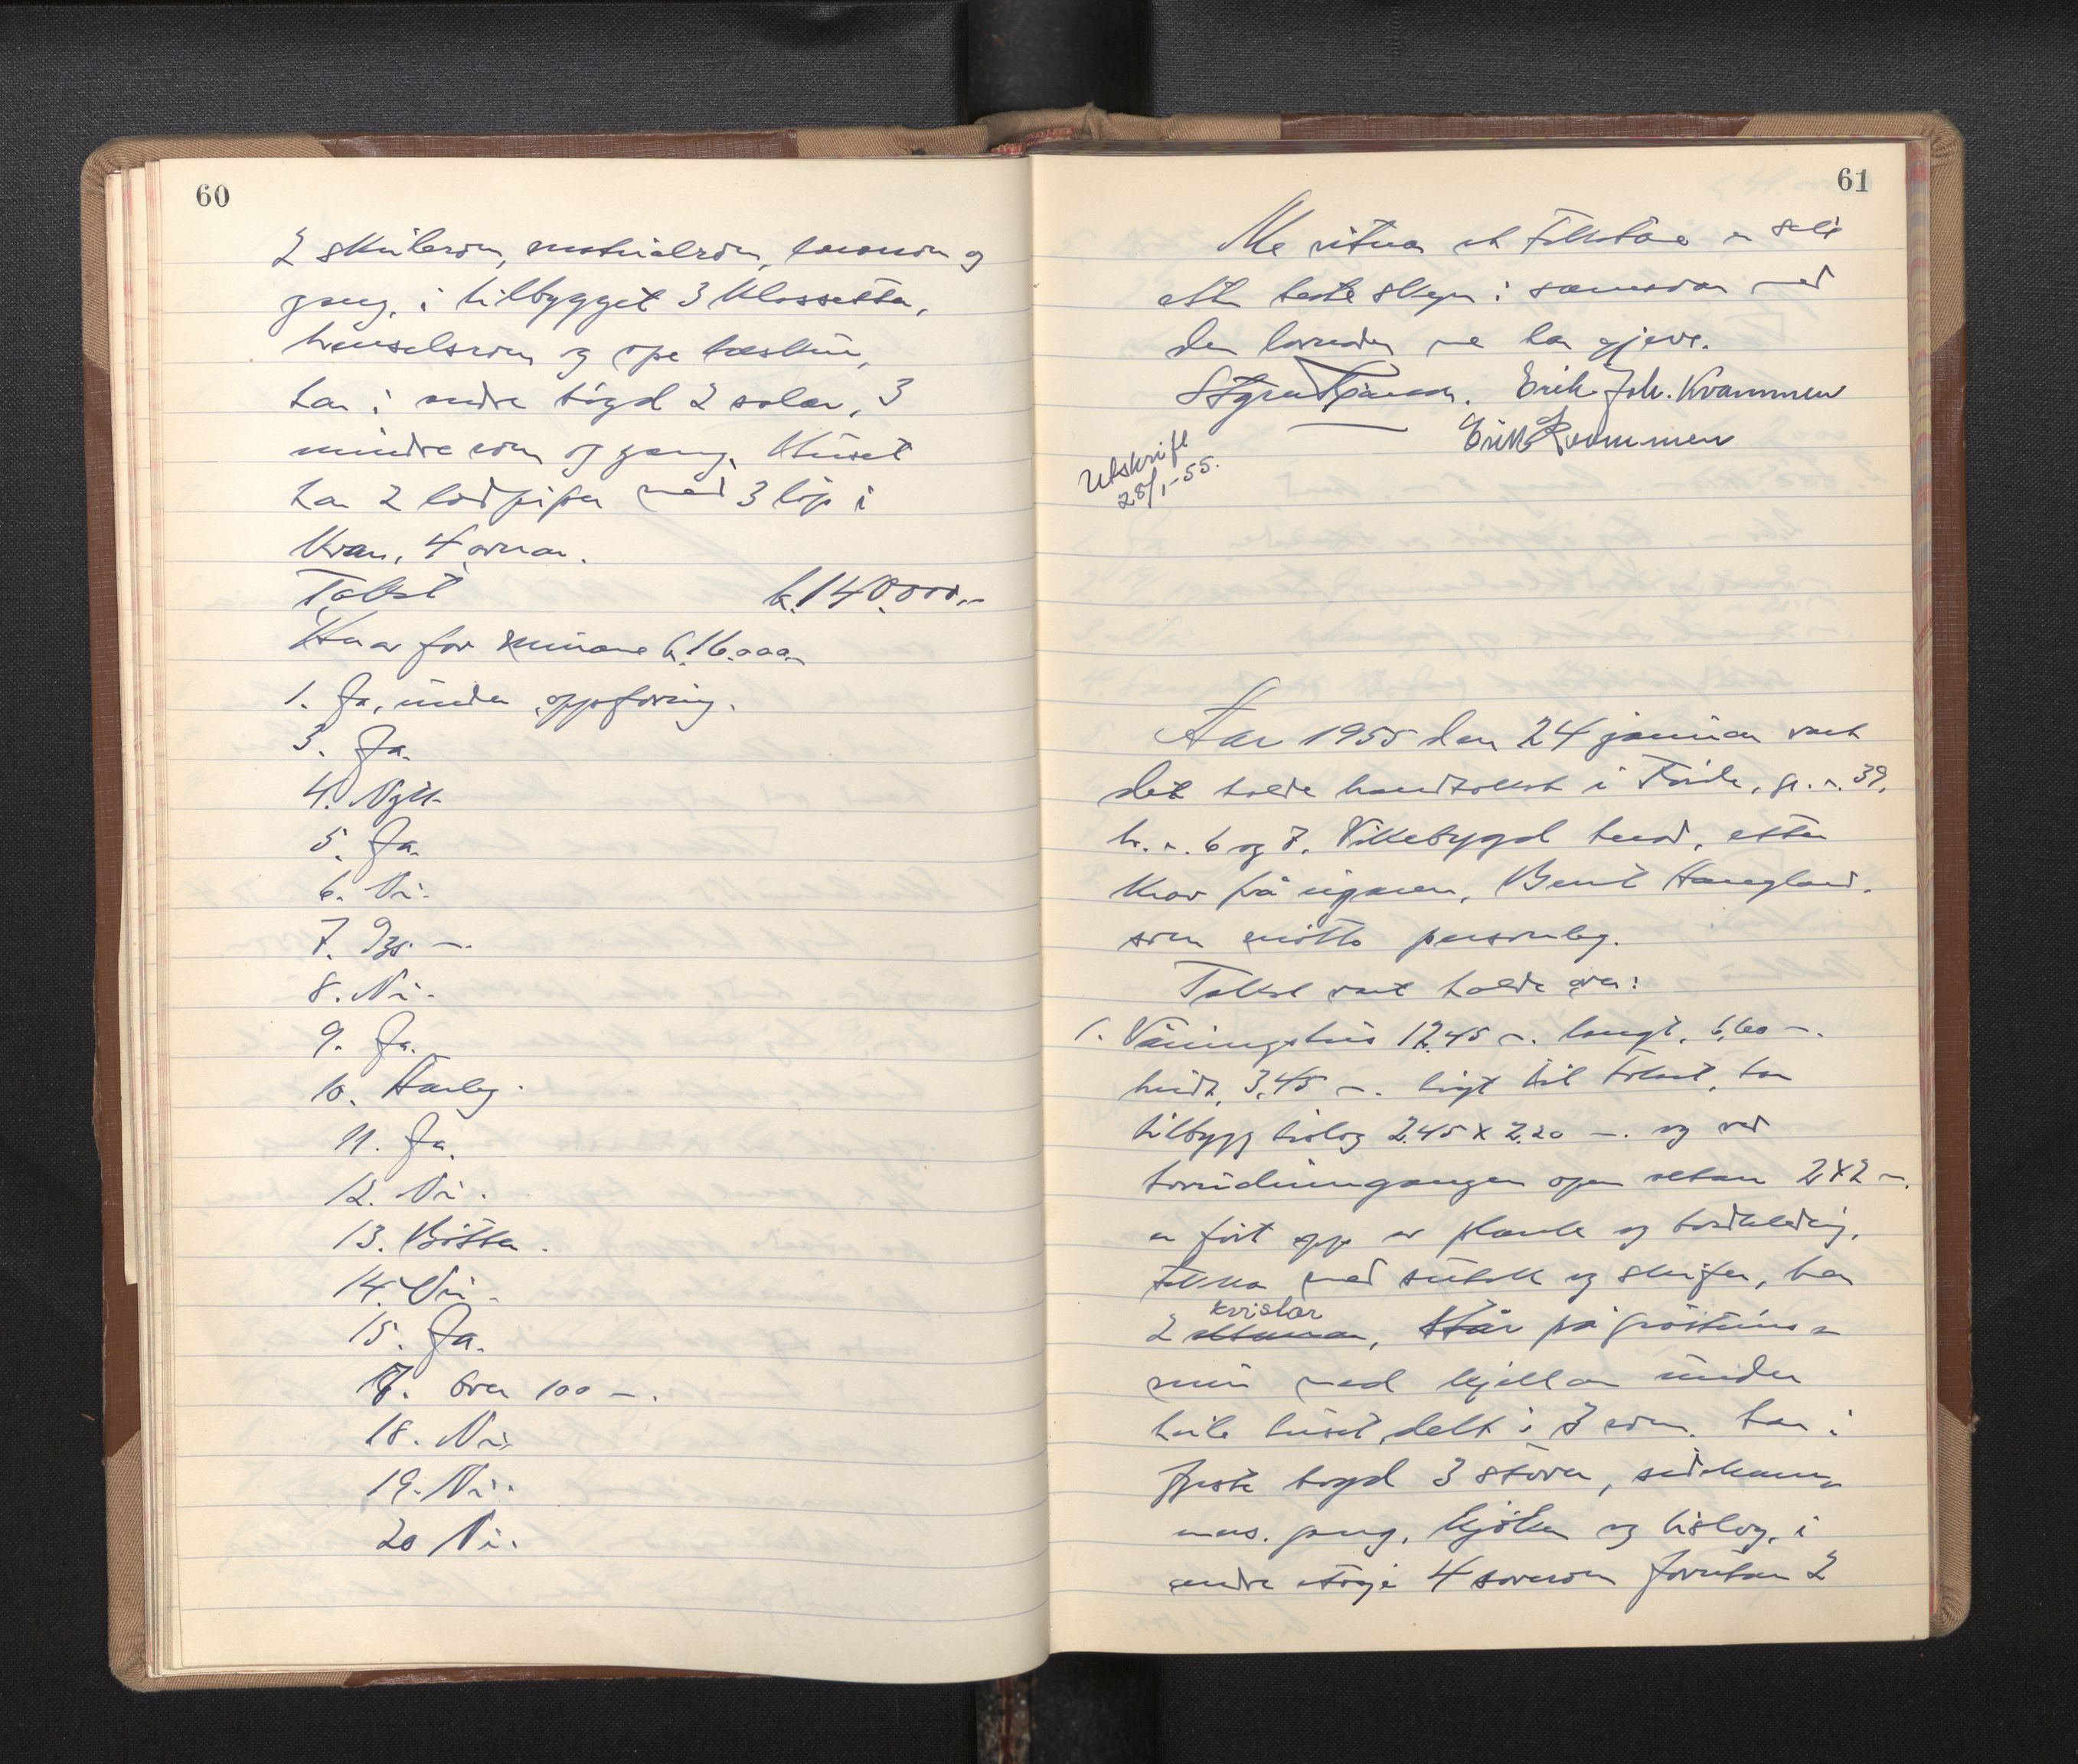 60
2 skulerom, materialrom, lærarrom og
gang, i tilbygget 3 klossetta,
kvenselsrom og ope
har i andre høgd 2 salar, 3
mindre rom og gang. Huset
har 2 lodpipa med 3 løp i
kvar, 4 omnar.
Takst kr. 140.000.-
Herav for murane kr. 16.000.-
1. Ja, under oppføring.
3. Ja.
4. Nytt.
5. Ja.
6. Nei.
7. 935 m.
8. Nei.
9. Ja.
10. Årleg.
11. Ja.
12. Nei.
13. Bøtta.
14. Nei.
15. Ja.
17. Over 100 m.
18. Nei.
19. Nei.
20 Nei.
61
Me vitnar at takstane er sett
etter beste skyn i samsvar med
den lovnaden me har gjeve.
Erik Joh. Kvammen
Erik Kvammen
Utskrift
28/1-55.
Aar 1955 den 24 januar vart
det halde brandtakst i gr. nr. 39,
br. nr. 6 og 7, Vikebygd herad, etter
krav frå eigaren, Bernt Haugland.
som møtte personleg.
Takst vart halde over:
1. Våningshus 12,45 m. langt, 6,60 m.
breidt, 3,45 m. høgt til taket, har
tilbygg bislag 2.45 x 2.20 m. og ved
hovudinngangen open altan 2x2 m.
er ført opp av plank og bordkledning,
tekka med sutak og skifer, har
2 kvistar, Står på gråsteins=
mur med kjellar under
heile huset, delt i 3 rom. har i
fyrste høgd 3 stover, sidekam=
mers. gang, kjøken og bislag, i
andre høgd 4 soverom forutan 2